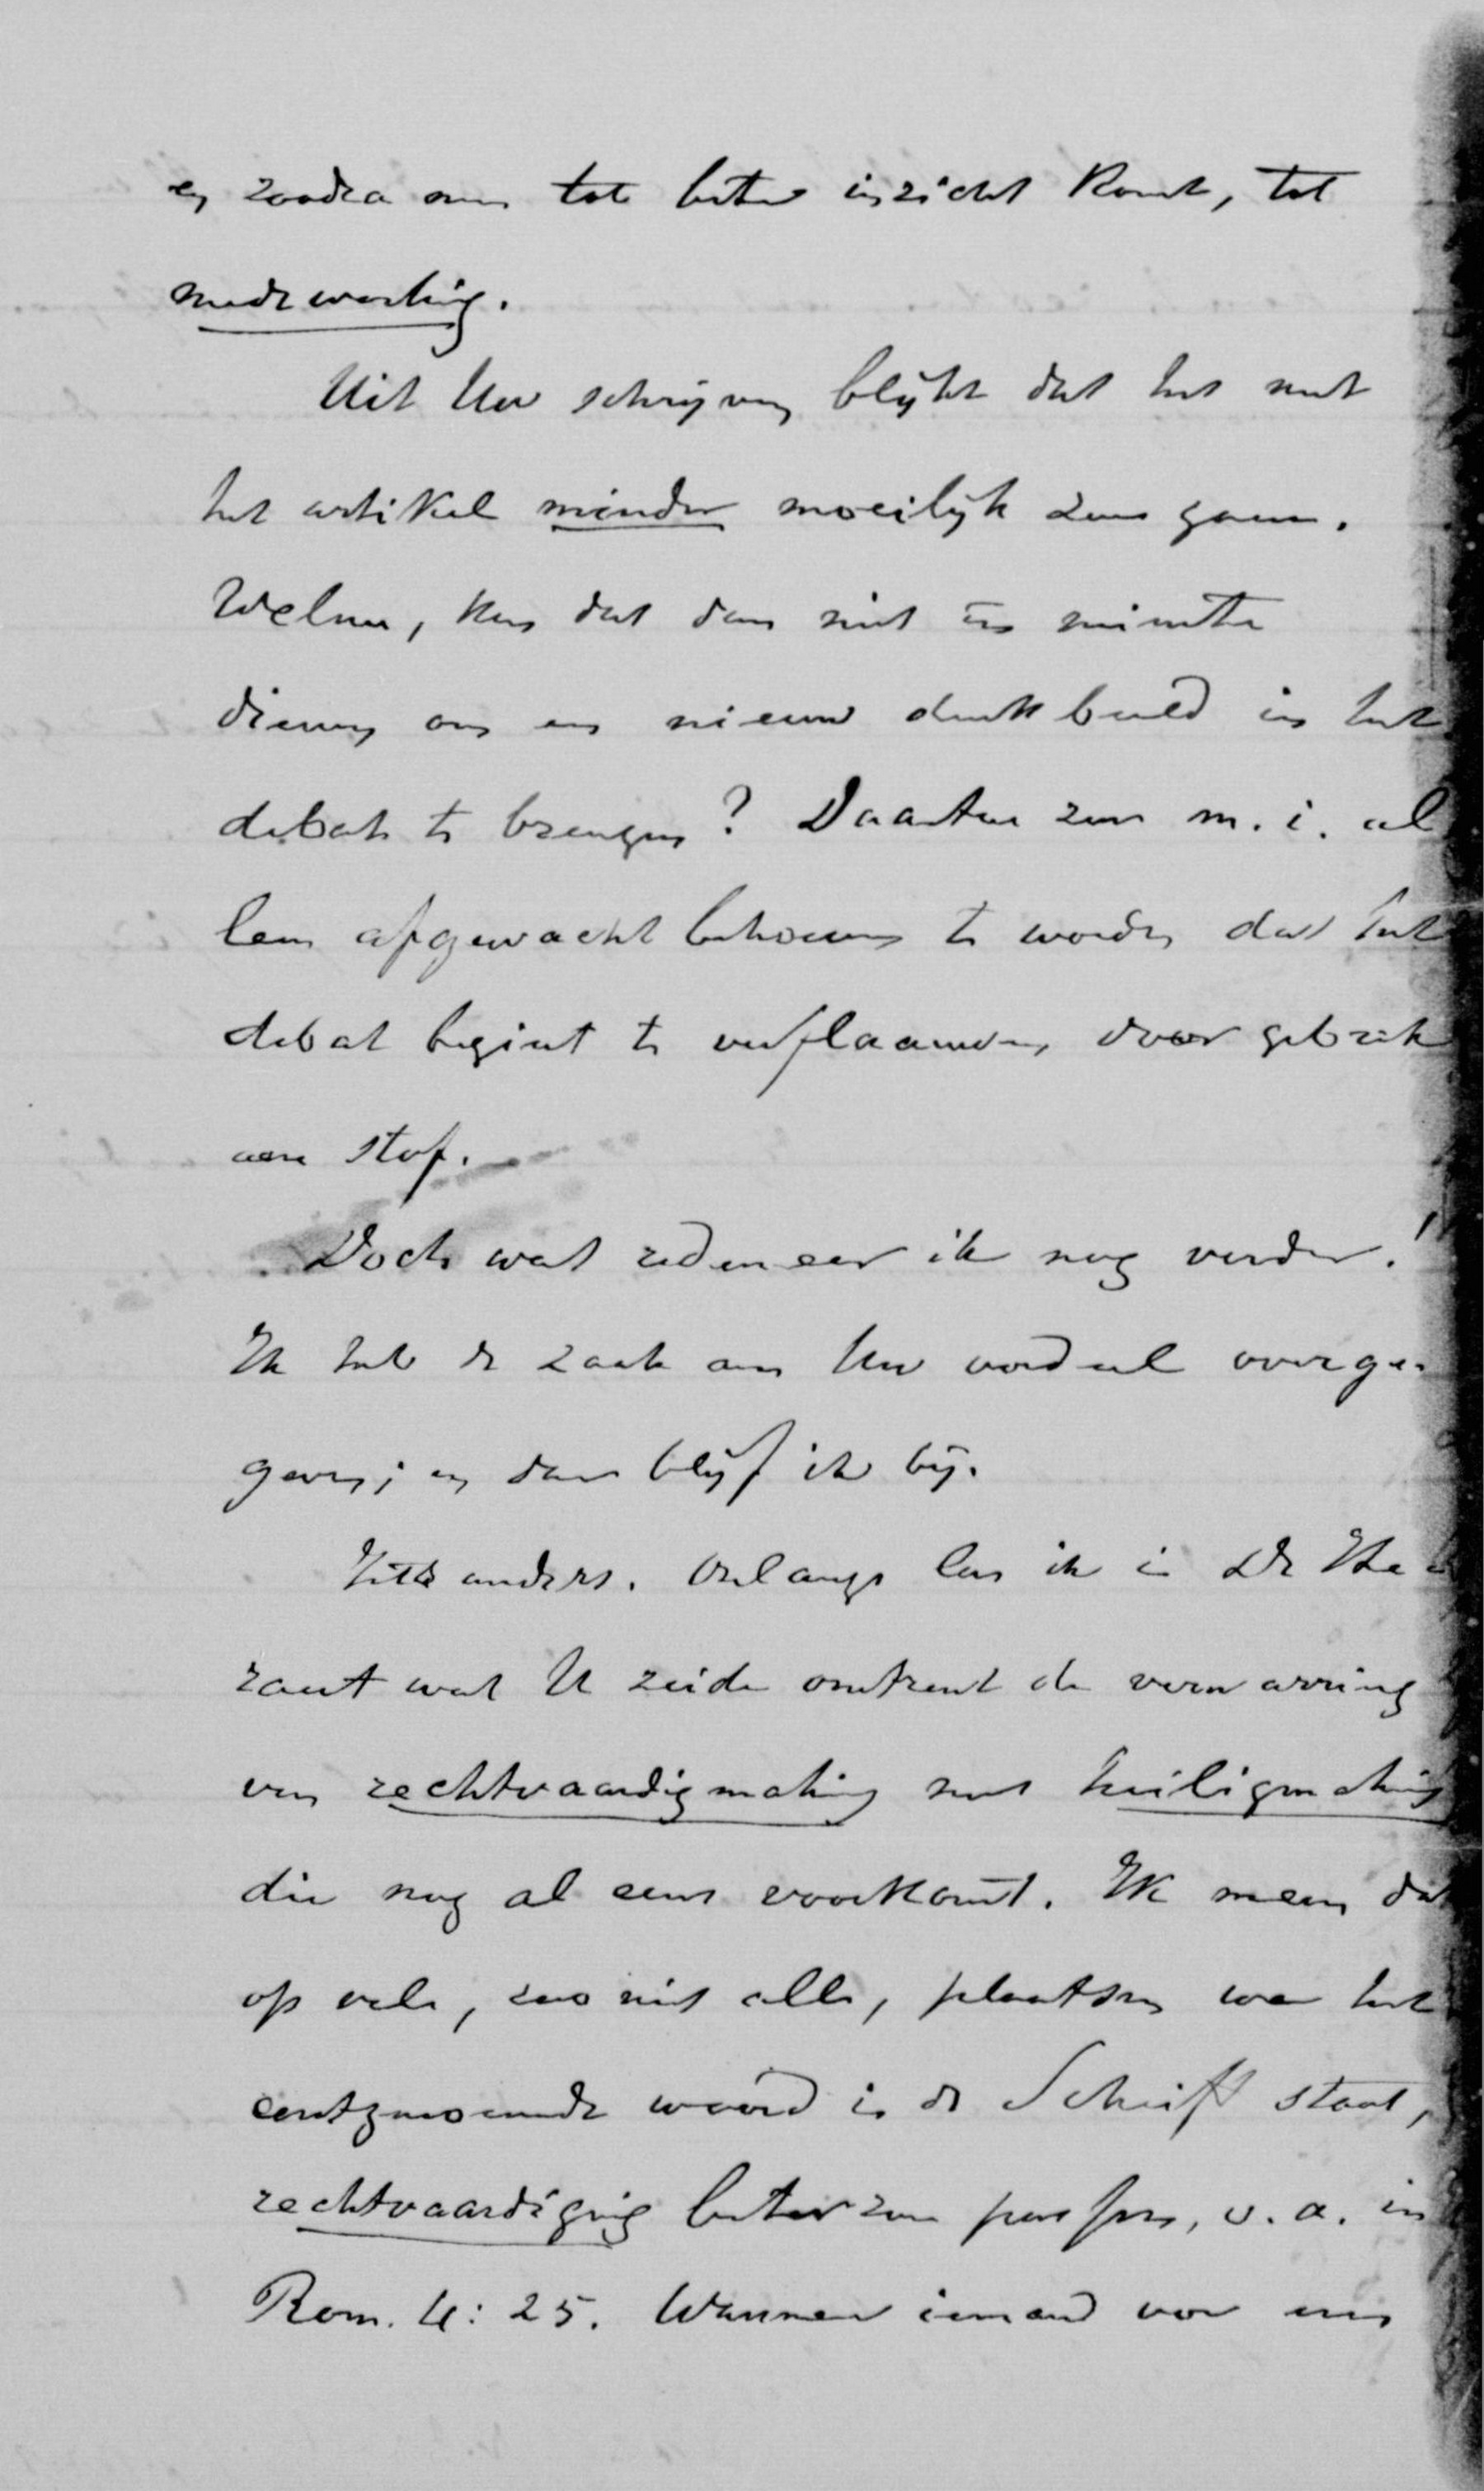 en zoodra men tot beter inzicht komt, tot
medewerking.
Uit Uw schrijven blijkt dat het met
het artikel minder moeilijk zou gaan.
Welnu, kan dat dan niet
dienen om een nieuw denkbeeld in het
debat te brengen? Daartoe zou m. i. al
leen afgewacht behoeven te worden dat het
debat begint te verflaauwen, door gebrek
aan stof.
Doch wat redeneer ik nog verder!
Ik heb de zaak aan Uw oordeel overge-
geven; en daar blijf ik bij.
Iets anders. Onlangs las ik in De He
raut wat U zeide omtrent de verwarring
van rechtvaardigmaking met heiligmaking
die nog al eens voorkomt. Ik meen dat
op vele, zoo niet alle, plaatsen waar het
eerstgenoemde woord in de Schrift staat,
rechtvaardiging beter zou passen, o. a. in
Rom. 4: 25. Wanneer iemand voor een